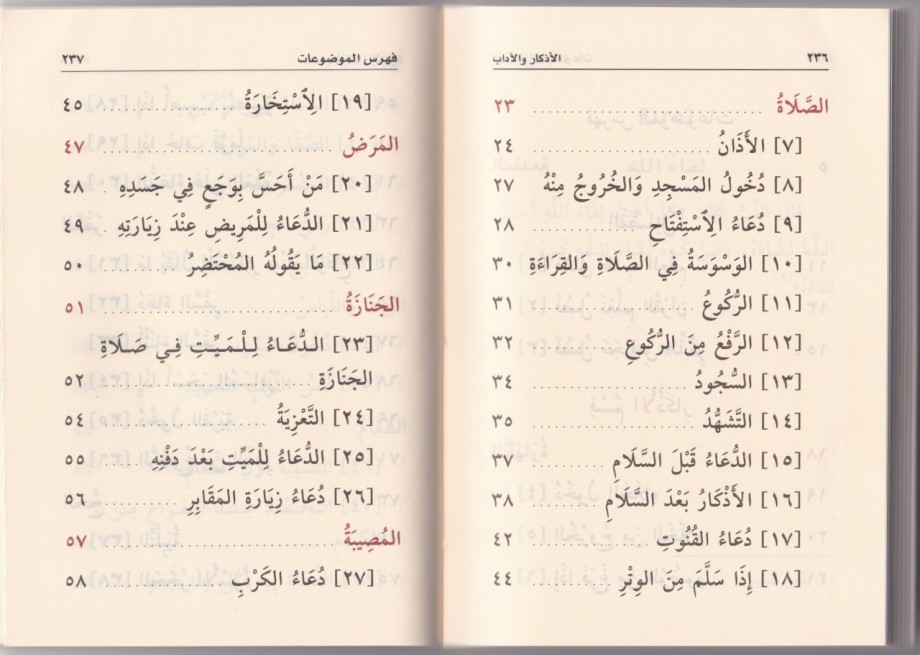 ٢٣٦ الأذكار والآداب
الصَّلَاةُ ........ ٢٣
[٧] الأَذَانُ ........ ٢٤
[٨] دُخُولُ المَسْجِدِ وَالخُرُوجُ مِنْهُ ٢٧
[٩] دُعَاءُ الِاسْتِفْتَاحِ ........ ٢٨
[١٠] الوَسْوَسَةُ فِي الصَّلَاةِ وَالقِرَاءَةِ ٣٠
[١١] الرُّكُوعُ ........ ٣١
[١٢] الرَّفْعُ مِنَ الرُّكُوعِ ........ ٣٢
[١٣] السُّجُودُ ........ ٣٤
[١٤] التَّشَهُّدُ ........ ٣٥
[١٥] الدُّعَاءُ قَبْلَ السَّلَامِ ........ ٣٧
[١٦] الأَذْكَارُ بَعْدَ السَّلَامِ ........ ٣٨
[١٧] دُعَاءُ القُنُوتِ ........ ٤٢
[١٨] إِذَا سَلَّمَ مِنَ الوِتْرِ ........ ٤٤
فهرس الموضوعات ٢٣٧
[١٩] الِاسْتِخَارَةُ ........ ٤٥
المَرَضُ ........ ٤٧
[٢٠] مَنْ أَحَسَّ بِوَجَعٍ فِي جَسَدِهِ ٤٨
[٢١] الدُّعَاءُ لِلْمَرِيضِ عِنْدَ زِيَارَتِهِ ٤٩
[٢٢] مَا يَقُولُهُ المُحْتَضِرُ ........ ٥٠
الجَنَازَةُ ........ ٥١
[٢٣] الدُّعَاءُ لِلْمَيِّتِ فِي صَلَاةِ
الجَنَازَةِ ........ ٥٢
[٢٤] التَّعْزِيَةُ ........ ٥٤
[٢٥] الدُّعَاءُ لِلْمَيِّتِ بَعْدَ دَفْنِهِ ........ ٥٥
[٢٦] دُعَاءُ زِيَارَةِ المَقَابِرِ ........ ٥٦
المُصِيبَةُ ........ ٥٧
[٢٧] دُعَاءُ الكَرْبِ ........ ٥٨